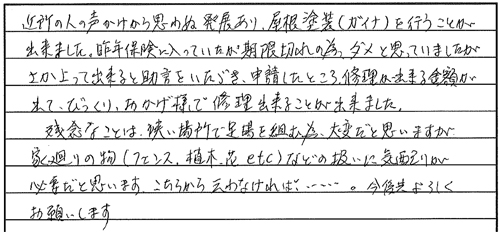 近所の人の声かけから思わぬ発展あり、屋根塗装(ガイナ)を行うことが
出来ました。昨年保険に入っていたが期限切れの為、ダメと思っていましたが
さか上って出来ると助言をいただき、申請したところ、修理が出来る金額が
出て、びっくり、おかげ様で修理出来ることが出来ました。
残念なことは、狭い場所で足場を組む為、大変だと思いますが
家廻りの物(フェンス、植木、花etc)などの扱いに気配りが
必要だと思います、こちらから云わなければ、……。今後共よろしく
お願いします